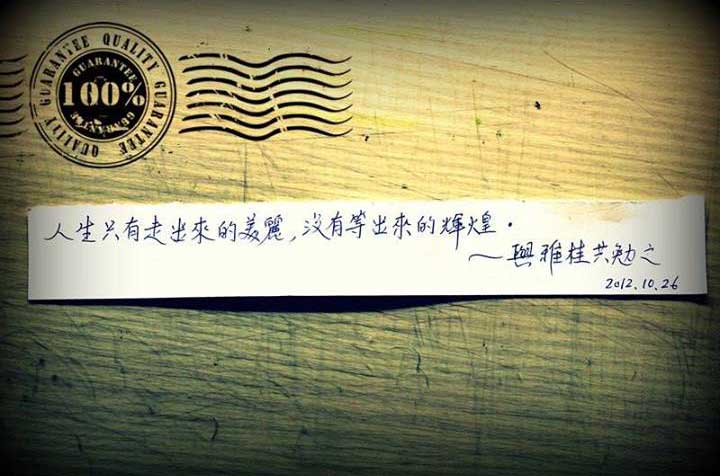 QUALITY GUARANTEE QUALITY GUARANTEE
GUARANTEE
100%
GUARANTEE
人生只有走出來的美麗,沒有等出來的輝煌.
~與雅桂共勉之
2012.10.26